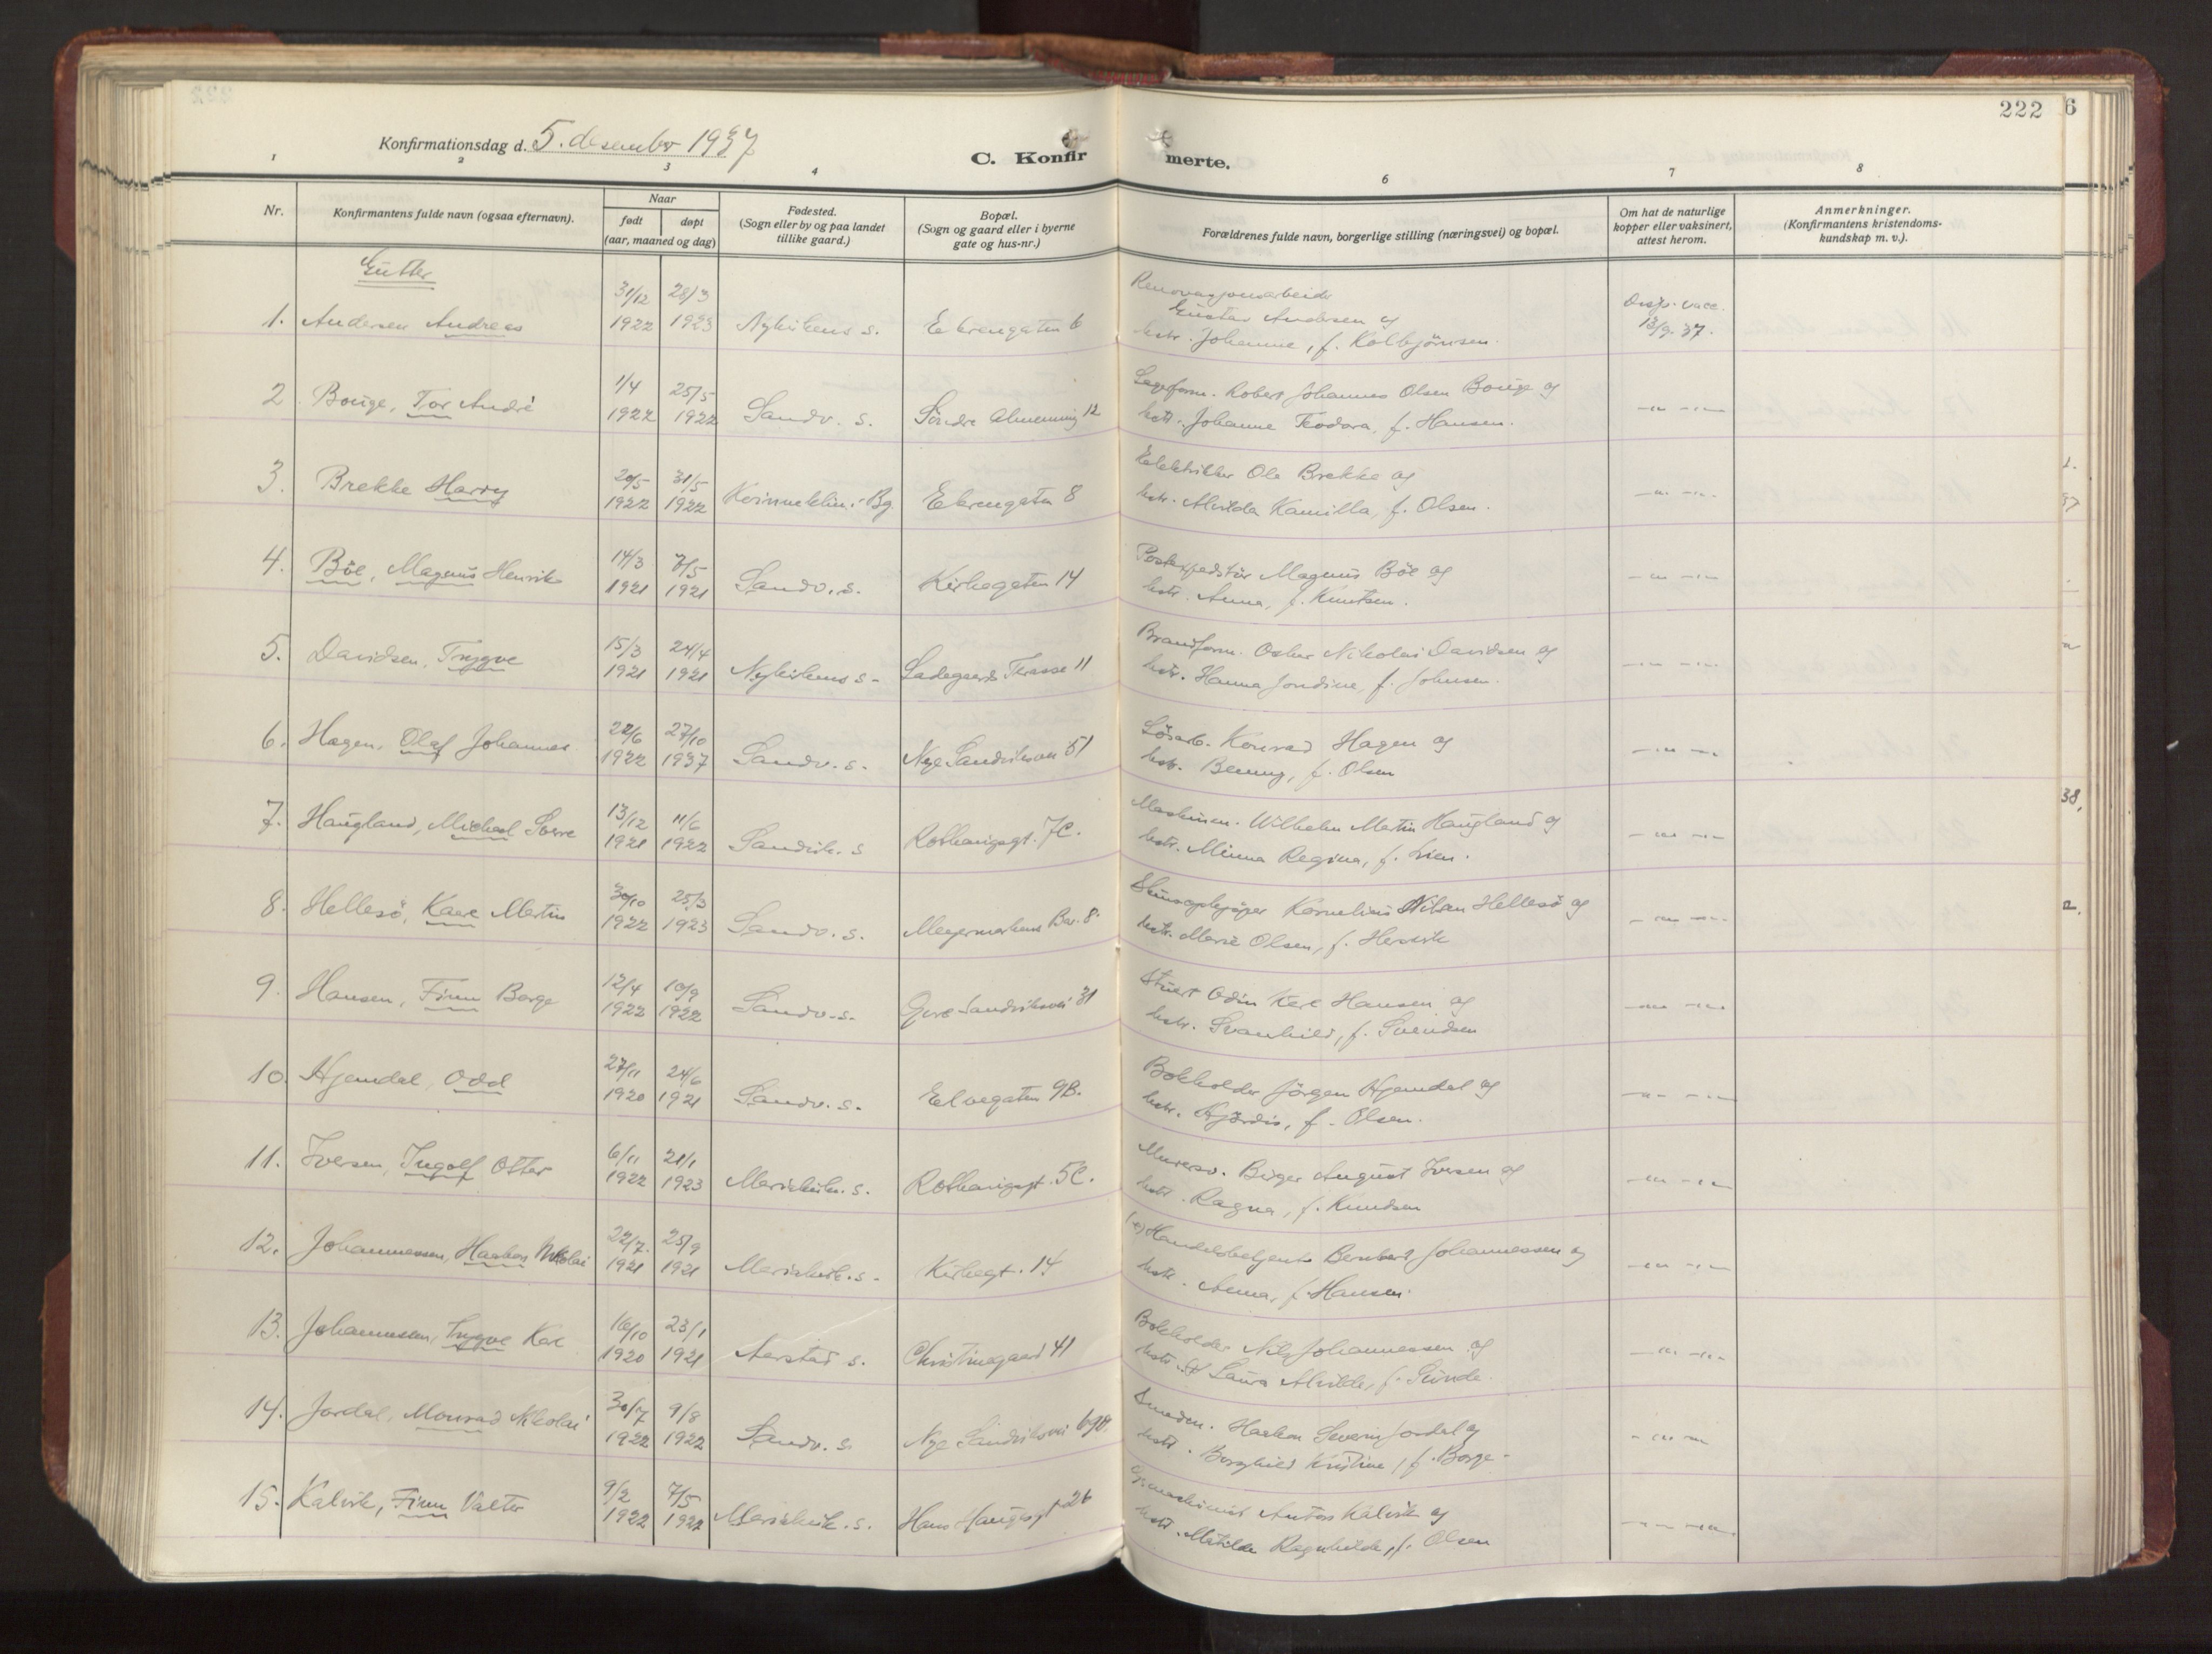 222 6
Konfirmationsdag d. 5. desember 1937
C. Konfirmerte.
1 2 3 4 6 7 8
Nr.
Konfirmantens fulde navn (ogsaa efternavn).
Naar
født døpt
(aar, maaned og dag)
Fødested.
(Sogn eller by og paa landet
tillike gaard.)
Bopæl.
(Sogn og gaard eller i byerne
gate og hus-nr.)
Forældrenes fulde navn, borgerlige stilling (næringsvei) og bopæl.
Om hat de naturlige
kopper eller vaksinert,
attest herom.
Anmerkninger.
(Konfirmantens kristendoms-
kundskap m. v.).
Gutter
31/12 28/3 Renovasjonsarbeider
1. Andersen Andreas 1922 1923 Nykirkens s. Ekrengaten 6 Gustav Andersen og
hstr. Johanne, f. Kolbjørnsen.
Disp. vacc.
13/9. 37.
1/4 25/5 Lagerform. Robert Johannes Olsen Bouge og
2. Bouge, Tor André 1922 1922 Sandv. s. Söndre Almenning 12 hstr. Johanne Teodora, f. Hansen. -"- -"-
20/5 31/5 Elektriker Ole Brekke og
3. Brekke Harry 1922 1922 Kvinneklin. Bg. Ekrengaten 8 hstr. Alvilda Kamilla, f. Olsen. -"- -"-
14/3 7/5 Postekspeditør Magnus Böe og
4. Böe, Magnus Henrik 1921 1921 Sandv. s. Kirkegaten 14 hstr. Anna, f. Knutsen. -"- -"-
15/3 24/4 Brandform. Oskar Nikolai Davidsen og
5. Davidsen, Trygve 1921 1921 Nykirkens s. Ladegaards Terasse 11 hstr. Hanna Jondine, f. Johnsen. -"- -"-
22/6 27/10 Lösarb. Konrad Hagen og
6. Hagen, Olaf Johannes 1922 1937 Sandv. s. Nye Sandviksvei 51 hstr. Benny, f. Olsen -"- -"-
13/12 11/6 Maskinm. Wilhelm Martin Haugland og
7. Haugland, Michael Sverre 1921 1922 Sandvik. s Rothaugsgt. 7C. hstr. Minna Regina, f. Lien. -"- -"-
30/10 25/3 Kornelius Nilsen Hellesö og
8. Hellesö, Kaare Martin 1922 1923 Sandv. s. Meyermarkens Bar. 8. hstr. Marie Olsen, f. Hersvik -"- -"-
12/4 10/9 Stuert Odin Kare Hansen og
9. Hansen, Finn Borge 1922 1922 Sandv. s. Övre Sandviksvei 31 hstr. Svanhild, f. Svendsen -"- -"-
27/11 24/6 Bokholder Jörgen Hjemdal og
10. Hjemdal, Odd 1920 1921 Sandv. s. Elvegaten 9B. hstr. Hjördis, f. Olsen. -"- -"-
6/11 21/1 Murersv. Birger August Iversen og
11. Iversen, Ingolf Otter 1922 1923 Mariakirk. s. Rothaugsgt. 5C. hstr. Ragna, f. Knudsen -"- -"-
22/7. 25/9 Handelsbetjent Bernhard Johannessen og
12. Johannessen, Haakon Nikolai 1921 1921 Mariakirk. s. Kirkegt. 14 hstr. Anna, f. Hansen. -"- -"-
16/10 23/1 Bokholder Nils Johannessen og
13. Johannessen, Trygve Kare 1920 1921 Aarstad s. Christinegaard 41 hstr. Laura Alvilde, f. Gunde. -"- -"-
30/7 9/8 Haakon Severin Jordal og
14. Jordal, Monrad Nikolai 1922 1922 Sandv. s. Nye Sandviksvei hstr. Borghild Kristine, f. Borge. -"- -"-
9/2 7/5 Anton Kalvik og
15. Kalvik, Finn Valter 1922 1922 Mariakirk. s. Hans Haugesgt 26 hstr. Matilde Ragnhilde, f. Olsen -"- -"-
38,